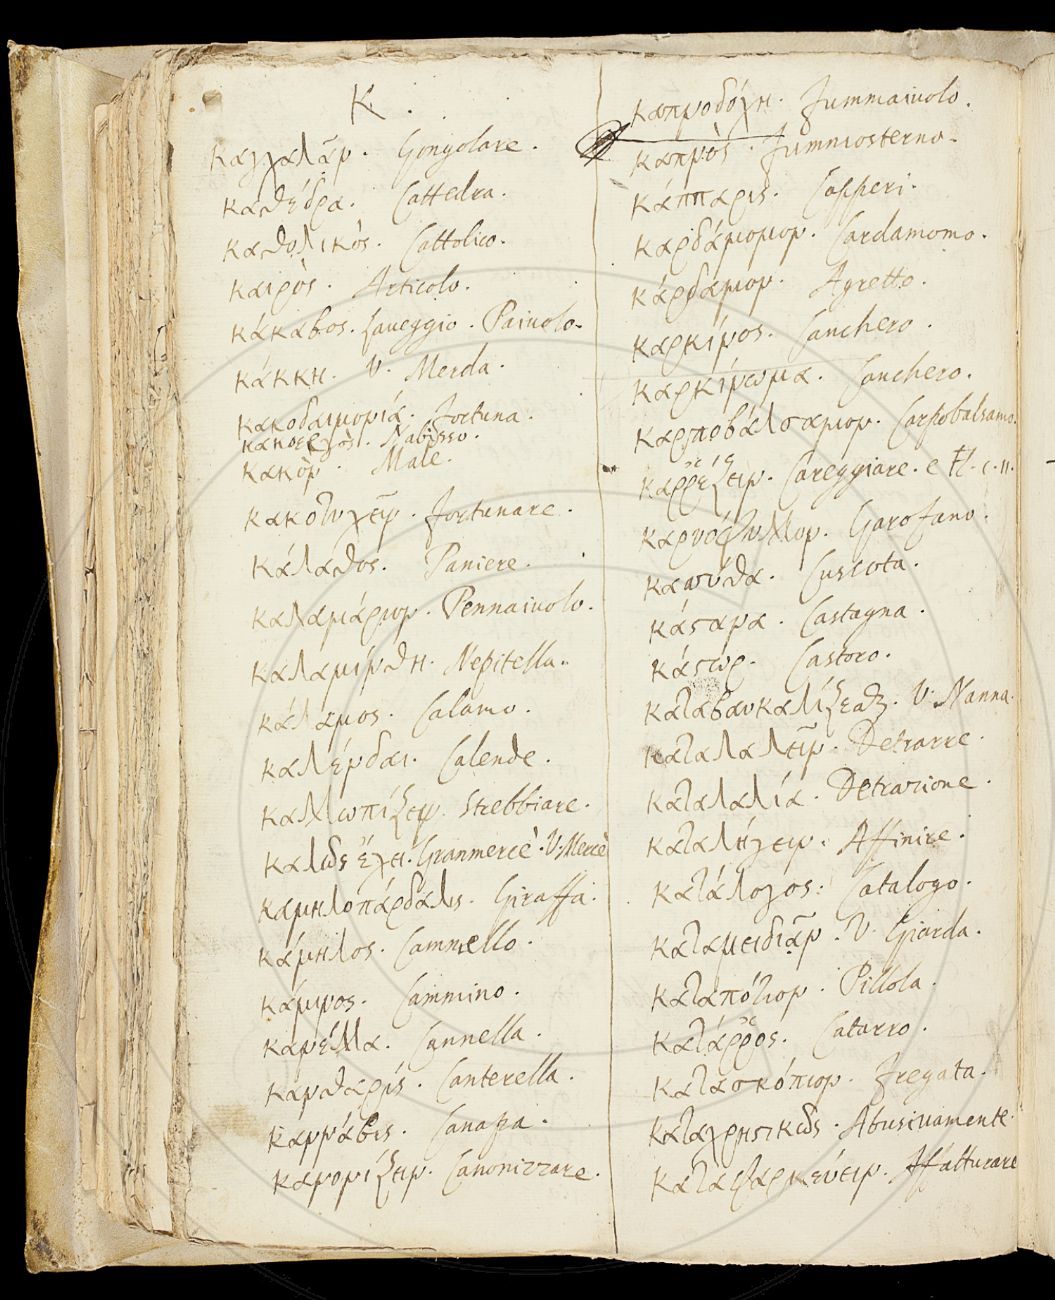 K.
καγχαλᾶν. Gongolare.
καθέδρα. Cattedra.
καθολικὸς. Cattolico.
καιρὸς. Articolo.
κάκαβος. Laveggio. Paiuolo.
κάκκη. V. Merda.
κακοδαιμονία. Fortuna.
κακοεργὸς. Nabisso.
κακὸν. Male.
κακοτυχεῖν. Fortunare.
κάλαθος. Paniere.
καλαμάριον. Pennaiuolo.
καλαμίνθη. Nepitella.
κάλαμος. Calamo.
καλένδαι. Calende.
καλλωπίζειν. Strebbiare.
καλῶς ἔχει. Granmercè. V. Mercè
καμηλοπάρδαλις. Giraffa.
κάμηλος. Cammello.
κάμινος. Cammino.
κανέλλα. Cannella.
κανθαρίς. Canterella.
κάνναβις. Canapa.
κανονίζειν. Canonizzare.
καπνοδόχη. Fummaiuolo.
καπνὸς. Fummosterno.
κάππαρις. Capperi.
καρδάμωμον. Cardamomo.
κάρδαμον. Agretto.
καρκίνος. Canchero.
καρκίνωμα. Canchero.
καρποβάλσαμον. Carpobalsamo.
καῤῥέζειν. Careggiare. e
καρυόφυλλον. Garofano.
κασύθα. Cuscuta.
κάστανα. Castagna.
κάστωρ. Castoro.
καταβαυκαλίζεσθαι. V. Nanna.
καταλαλεῖν. Detrarre.
καταλαλία. Detrazione.
καταλήγειν. Affinire.
κατάλογος. Catalogo.
καταμειδιᾶν. V. Giarda.
καταπότιον. Pillola.
κατάῤῥος. Catarro.
κατασκόπιον. Fregata.
καταχρηστικῶς. Abusivamente.
καταφαρμκεύειν. Affatturare